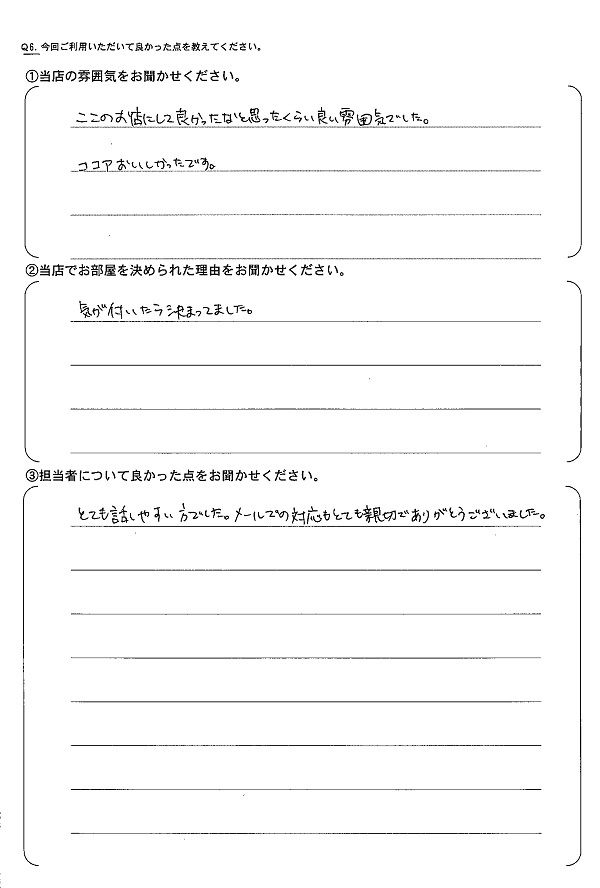 Q6. 今回ご利用いただいて良かった点を教えてください。
①当店の雰囲気をお聞かせください。
ここのお店にして良かったなと思ったくらい良い雰囲気でした。
ココアおいしかったです。
②当店でお部屋を決められた理由をお聞かせください。
気が付いたら決まってました。
③担当者について良かった点をお聞かせください。
とても話しやすい方でした。メールでの対応もとても親切でありがとうございました。